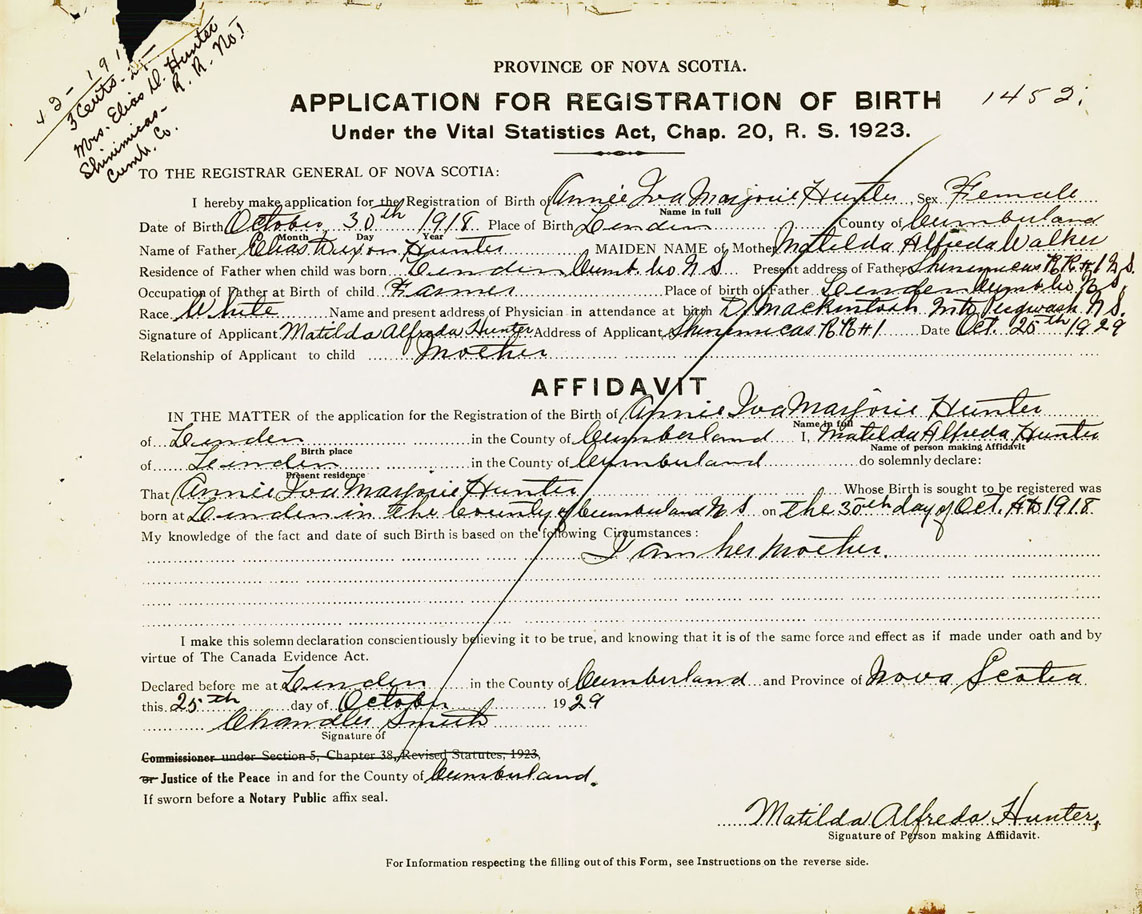 43-191
3 Cents
Mrs. Elias D. Hunter
Shinimicas - R. R. No 1
Cumb. Co.
PROVINCE OF NOVA SCOTIA.
APPLICATION FOR REGISTRATION OF BIRTH 1452
Under the Vital Statistics Act, Chap. 20, R. S. 1923.
TO THE REGISTRAR GENERAL OF NOVA SCOTIA:
I hereby make application for the Registration of Birth of Annie Iva Marjorie Hunter Sex Female
Name in full
Date of Birth October 30th 1918 Place of Birth Linden County of Cumberland
Month Day Year
Name of Father Elias Hunter MAIDEN NAME of Mother Matilda Alfreda Walker
Residence of Father when child was born Linden Cumb. Co N S Present address of Father Shinimicas R R #1 N.S.
Occupation of Father at Birth of child Farmer Place of birth of Father Linden Cumb. Co. N. S.
Race. White Name and present address of Physician in attendance at birth D. Mackintosh Pugwash N.S.
Signature of Applicant Matilda Alfreda Hunter Address of Applicant Shinimicas R R #1 Date Oct. 25th 1929
Relationship of Applicant to child Mother
AFFIDAVIT
IN THE MATTER of the application for the Registration of the Birth of Annie Iva Marjorie Hunter
Name in full
of Linden in the County of Cumberland I, Matilda Alfreda Hunter
Birth place Name of person making Affidavit
of Linden in the County of Cumberland do solemnly declare:
Present residence
That Annie Iva Marjorie Hunter Whose Birth is sought to be registered was
born at Linden in the County of Cumberland N S on the 30th day of Oct. A.D. 1918
My knowledge of the fact and date of such Birth is based on the following Circumstances:
I am her Mother.
I make this solemn declaration conscientiously believing it to be true, and knowing that it is of the same force and effect as if made under oath and by
virtue of The Canada Evidence Act.
Declared before me at Linden in the County of Cumberland and Province of Nova Scotia
this 25th day of October 1929
Chandler Smith
Signature of
Commissioner under Section 5, Chapter 38, Revised Statutes, 1923,
or Justice of the Peace in and for the County of Cumberland.
If sworn before a Notary Public affix seal.
Matilda Alfreda Hunter,
Signature of Person making Affidavit.
For Information respecting the filling out of this Form, see Instructions on the reverse side.